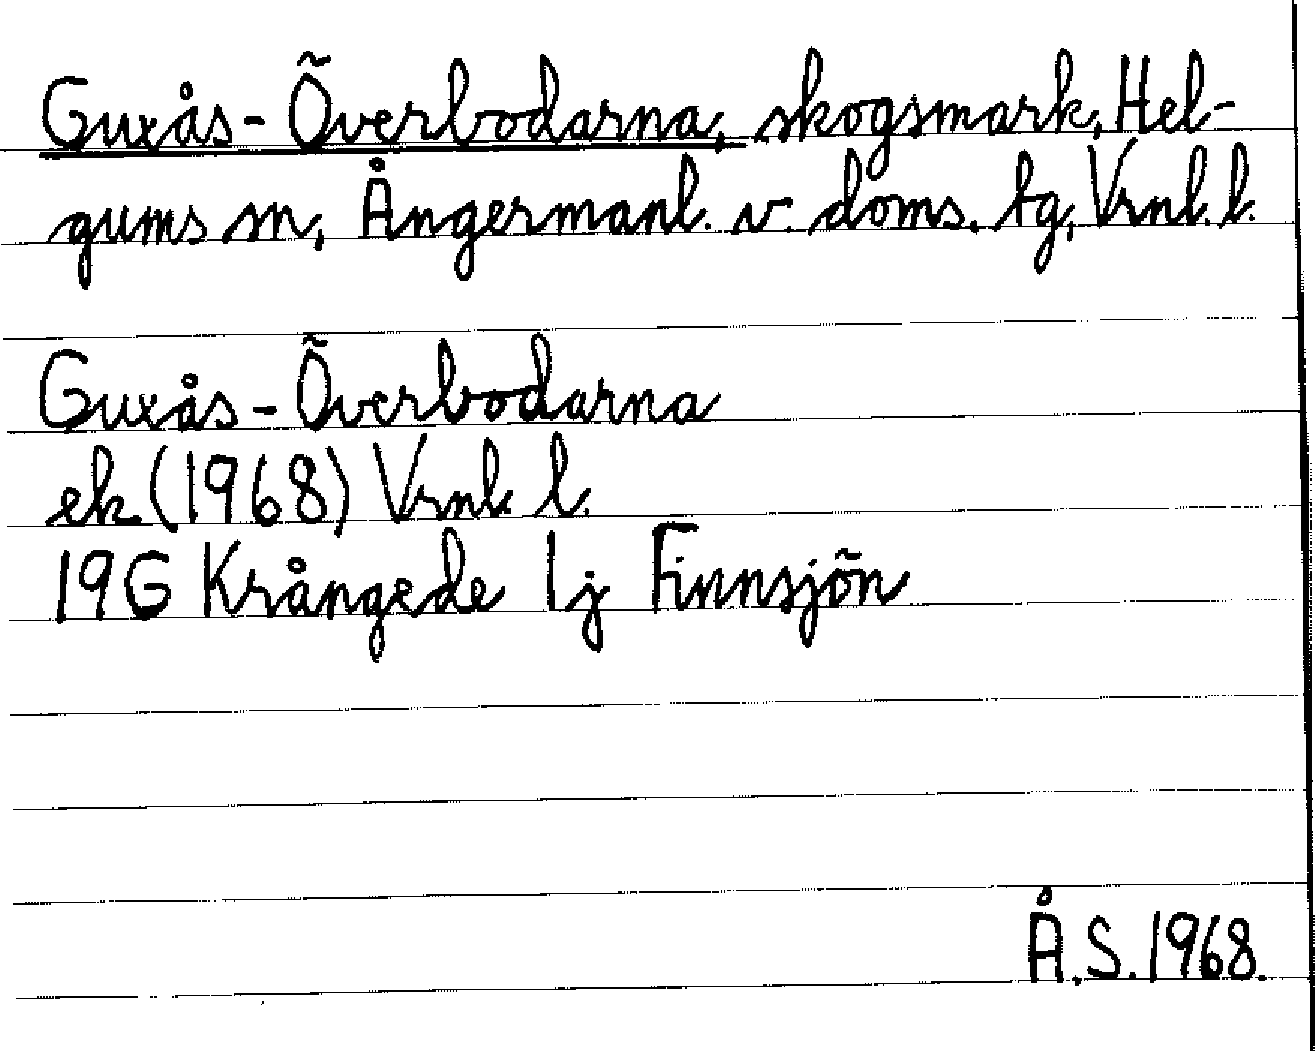 Guxås-Överbodarna, skogsmark, Hel-
gums sn, Ångermanl. v. doms. tg, Vrnl. l.
Guxås-Överbodarna
ek (1968) Vrnl. l.
19G Krångede 1j Finnsjön
Å.S. 1968.